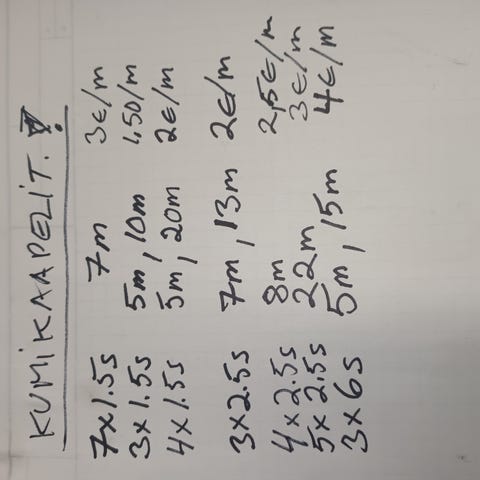 KUMIKAAPELIT.
7x1.5s 7m 3€/m
3x1.5s 5m, 10m 1,50/m
4x1.5s 5m, 20m 2€/m
3x2.5s 7m, 13m 2€/m
4x2.5s 8m 2,5€/m
5x2.5s 22m 3€/m
3x6s 5m, 15m 4€/m